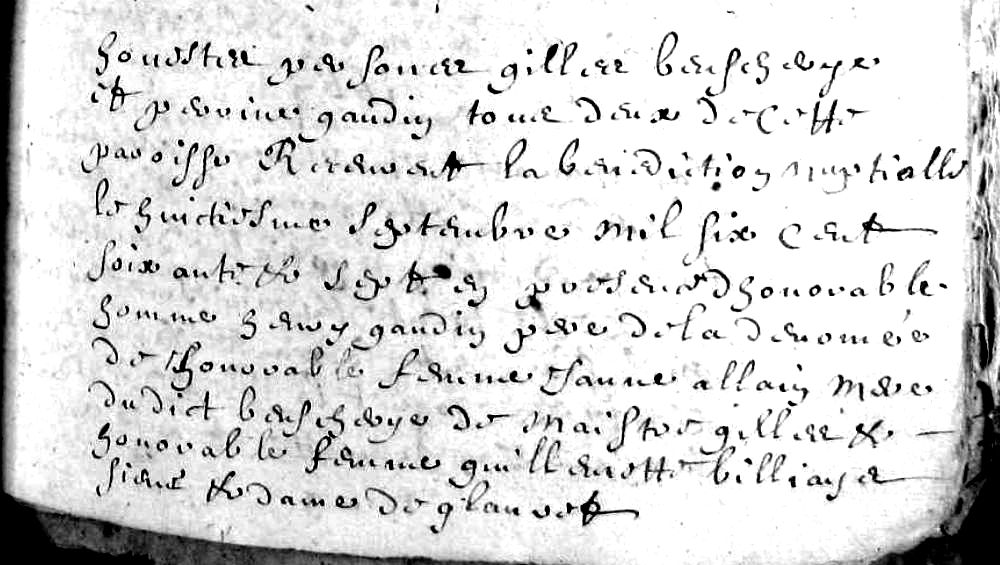 honestes personnes gilles berscheye
et perrine gaudin tous deux de cette
paroisse Receurent la benediction nuptialle
le huictiesme septembre mil six cent
soixante & sept en presence d'honorable
homme henry gaudin pere de la denomée
de honorable femme Janne allain mere
dudict berscheye de maistre gilles &
honorable femme guillemette
sieur & dame de